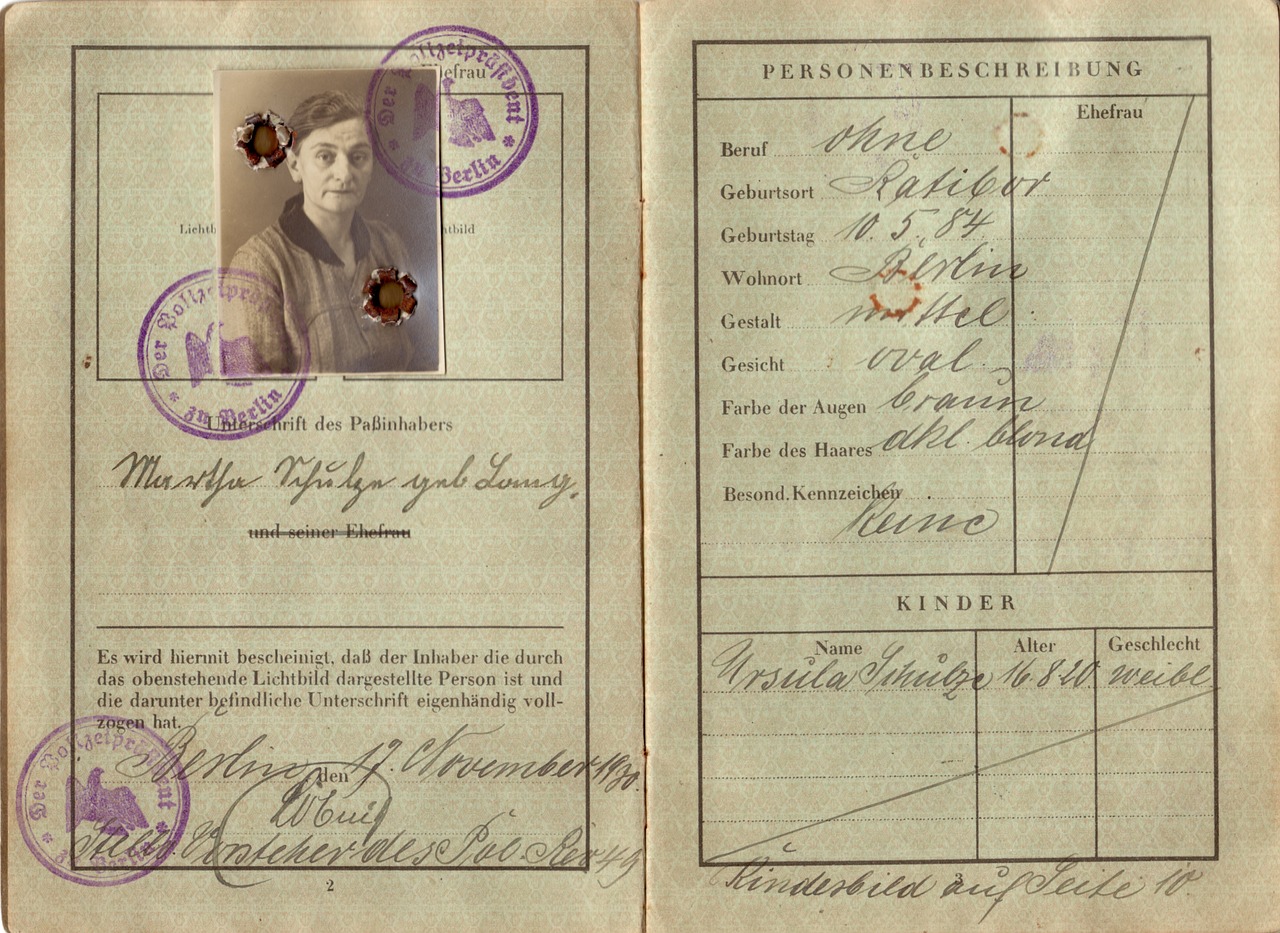 Ehefrau
Der Polizeipräsident
* zu Berlin *
Lichtb
htbild
Der Polizeipräsident
* zu Berlin *
Unterschrift des Paßinhabers
Martha Schulze geb Lang.
und seiner Ehefrau
Es wird hiermit bescheinigt, daß der Inhaber die durch
das obenstehende Lichtbild dargestellte Person ist und
die darunter befindliche Unterschrift eigenhändig voll-
zogen hat.
Berlin, den 17. November 1930.
Der Polizeipräsident
* zu Berlin *
Stellv. Vorsteher des Pol. Rev 49
2
PERSONENBESCHREIBUNG
Ehefrau
Beruf ohne
Geburtsort Ratibor
Geburtstag 10. 5. 84
Wohnort Berlin
Gestalt mittel
Gesicht oval
Farbe der Augen braun
Farbe des Haares dkl. blond
Besond. Kennzeichen
Keine
KINDER
Name Alter Geschlecht
Ursula Schulze 16.8.20 weibl
3
Kindesbild auf Seite 10.